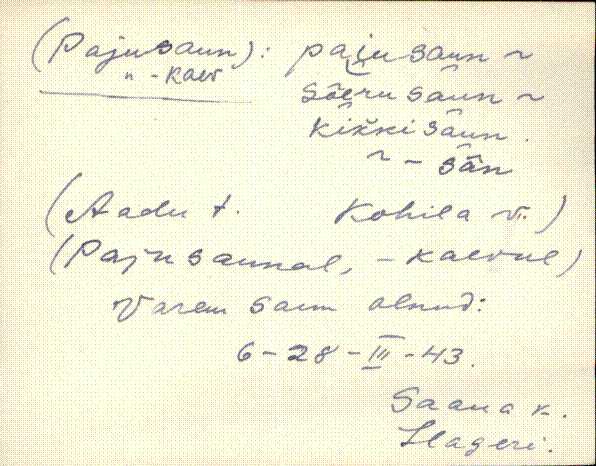 (Pajusaun): pajusaun ~
" -kaev sõeru saun ~
kikki saun.
~ - sān
(Aadu t. Kohila v.)
(Pajusaunal, -kaevul)
Varem saun olnud:
6-28-III-43.
Saana k.
Hageri.